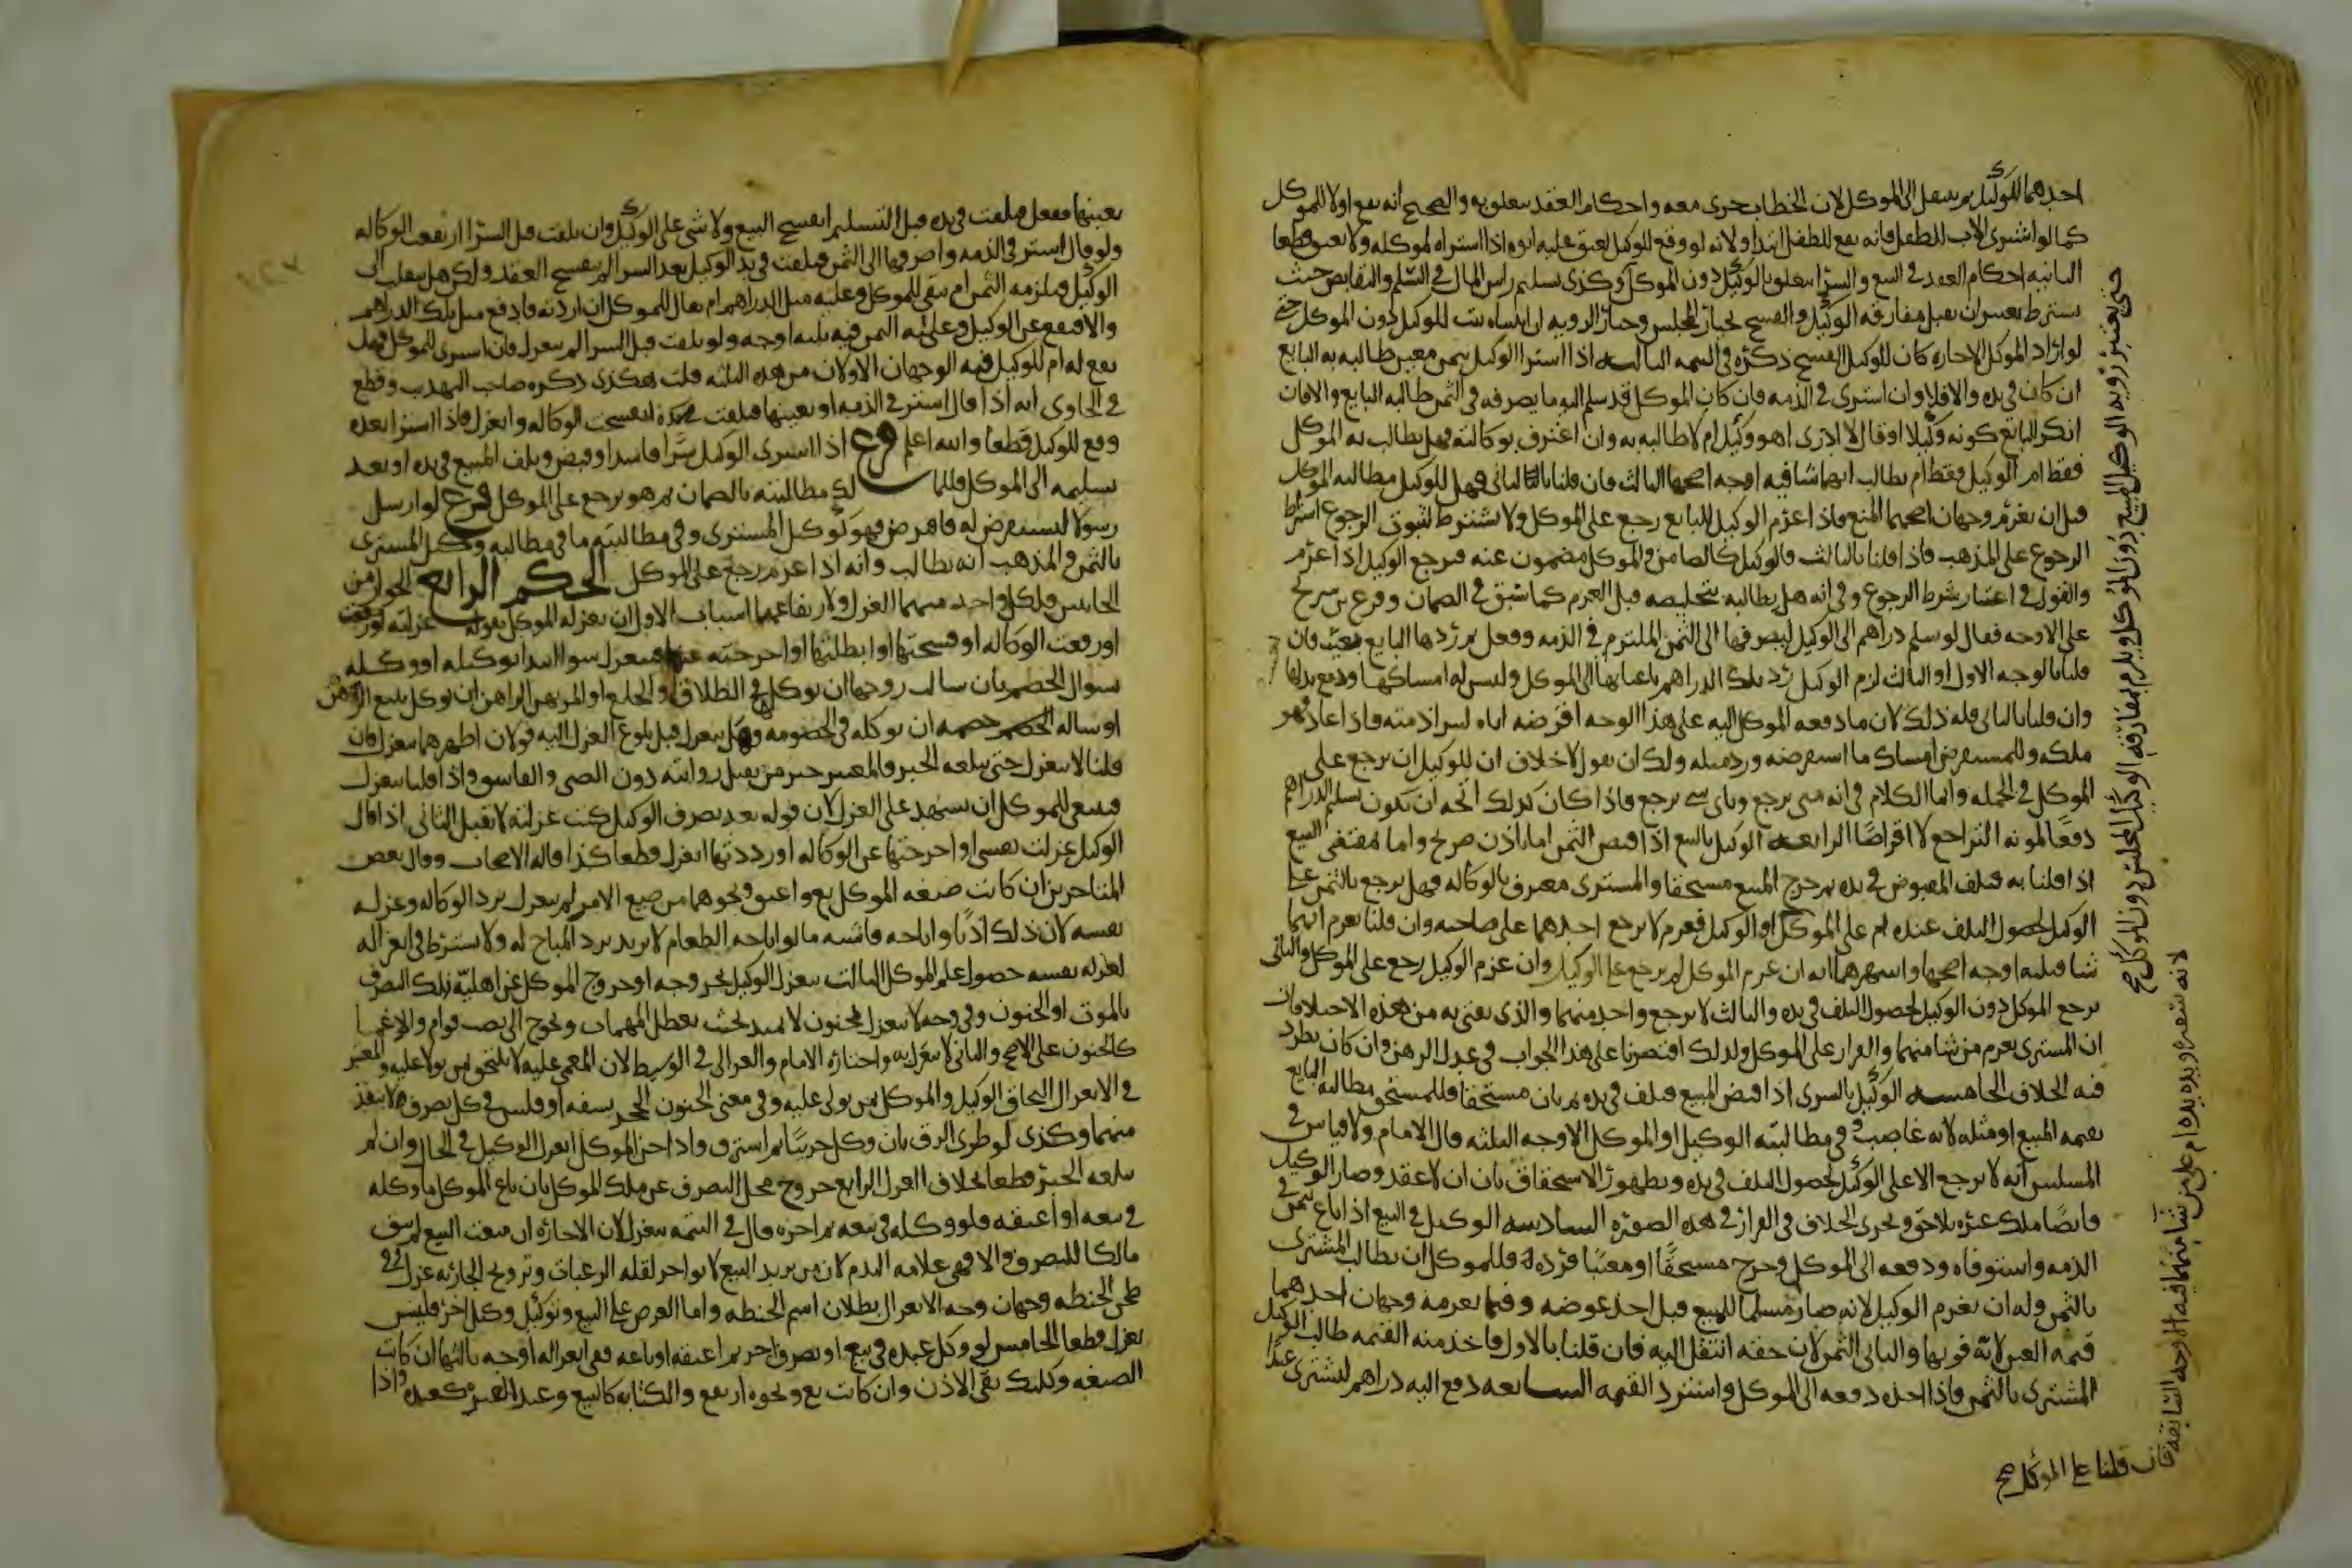 احدهما للوكيل ثم ينتقل الى الموكل لان الخطاب جرى معه واحكام العقد تتعلق به والصحيح انه يقع اولا للموكل
كما لو اشترى الاب للطفل فانه يقع للطفل ابتدا ولانه لو وقع للوكيل لعتق عليه ابوه اذا اشتراه لموكله ولا يعتق قطعا
الثانيه احكام العقد في البيع والشرا تتعلق بالوكيل دون الموكل وكذى تسليم راس المال في السلم والتقابض حيث
يشترط يعتبران قبل مفارقه الوكيل والفسخ بخيار المجلس وخيار الرويه ان اثبتناه يثبت للوكيل دون الموكل حتى
لو اراد الموكل الاجازه كان للوكيل الفسخ ذكره في التتمه الثالثه اذا اشترا الوكيل بثمن معين طالبه به البايع
ان كان في يده والا فلا وان اشترى في الذمه فان كان الموكل قد سلم اليه ما يصرفه في الثمن طالبه البايع والا فان
انكر البايع كونه وكيلا او قال لا ادرى اهو وكيل ام لا طالبه به وان اعترف بوكالته فهل يطالب به الموكل
فقط ام الوكيل فقط ام يطالب ايهما شا فيه اوجه اصحها الثالث فان قلنا بالثانى فهل للوكيل مطالبه الموكل
قبل ان يغرم وجهان اصحهما المنع فاذا غرم الوكيل للبايع رجع على الموكل ولا يشترط لثبوت الرجوع اشتراط
الرجوع على المذهب فاذا قلنا بالثالث فالوكيل كالضامن والموكل مضمون عنه فيرجع الوكيل اذا غرم
والقول في اعتبار شرط الرجوع وفي انه هل يطالبه بتخليصه قبل الغرم كما سبق في الضمان وفرع بن سريج
على الاوجه فقال لو سلم دراهم الى الوكيل ليصرفها الى الثمن الملتزم في الذمه ففعل ثم ردها البايع بعيب فان
قلنا بالوجه الاول او الثالث لزم الوكيل رد تلك الدراهم باعيانها الى الموكل وليس له امساكها ودفع بدلها
وان قلنا بالثانى فله ذلك لان ما دفعه الموكل اليه على هذا الوجه اقرضه اياه ليبرا ذمته فاذا عاد فهو
ملكه وللمستقرض امساك ما استقرضه ورد مثله ولك ان تقول لا خلاف ان للوكيل ان يرجع على
الموكل في الجمله وانما الكلام في انه متى يرجع وباى شى يرجع فاذا كان كذلك اتجه ان يكون تسليم الدراهم
دفعا لمونه التراجع لا اقراضا الرابعه الوكيل بالبيع اذا قبض الثمن اما باذن صريح واما بمقتضى البيع
اذا قلنا به فتلف المقبوض في يده ثم خرج المبيع مستحقا والمشترى معترف بالوكاله فهل يرجع بالثمن على
الوكيل لحصول التلف عنده ام على الموكل او الوكيل فغرم لا يرجع احدهما على صاحبه وان قلنا يغرم ايهما
شا فثلثه اوجه اصحها واشهرهما انه ان غرم الموكل لم يرجع على الوكيل وان غرم الوكيل رجع على الموكل والثانى
يرجع الموكل دون الوكيل لحصول التلف في يده والثالث لا يرجع واحد منهما والذى يفتى به من هذه الاختلافات
ان المشترى يغرم من شا منهما والقرار على الموكل ولذلك اقتصرنا على هذا الجواب في عدل الرهن وان كان يطرد
فيه الخلاف الخامسه الوكيل بالشرى اذا قبض المبيع فتلف في يده ثم بان مستحقا فللمستحق مطالبه البايع
بقيمه المبيع او مثله لانه غاصب وفي مطالبته الوكيل او الموكل الاوجه الثلثه قال الامام والاقيس في
المسلتين انه لا يرجع الا على الوكيل لحصول التلف في يده وبظهور الاستحقاق بان ان لا عقد وصار الوكيل
قابضا ملك غيره بلا حق ويجرى الخلاف في القرار في هذه الصوره السادسه الوكيل في البيع اذا باع بثمن في
الذمه واستوفاه ودفعه الى الموكل وخرج مستحقا او معيبا فرده فللموكل ان يطالب المشترى
بالثمن وله ان يغرم الوكيل لانه صار مسلما للمبيع قبل اخذ عوضه وفيما يغرمه وجهان احدهما
قيمه العين لانه فوتها والثانى الثمن لان حقه انتقل اليه فان قلنا بالاول فاخذ منه القيمه طالب الوكيل
المشترى بالثمن فاذا اخذه دفعه الى الموكل واسترد القيمه السابعه دفع اليه دراهم ليشترى عبدا
حتى تعتبر رويه الوكيل للمبيع دون الموكل ويلزم بمفارقه الوكيل المجلس دون الموكل صح
لانه سفيره ويده يده ام على من شا منهما فيه الاوجه السابقه
فان قلنا على الموكل صح
بعينها ففعل فتلفت في يده قبل التسليم انفسخ البيع ولا شى على الوكيل وان تلفت قبل الشرا ارتفعت الوكاله
ولو قال اشتر في الذمه واصرفها الى الثمن فتلفت في يد الوكيل بعد الشرا لم ينفسخ العقد ولكن هل ينقلب الى
الوكيل ويلزمه الثمن ام يبقى للموكل وعليه مثل الدراهم ام يقال للموكل ان اردته فادفع مثل تلك الدراهم
والا فيقع عن الوكيل وعليه الثمن فيه ثلثه اوجه ولو تلفت قبل الشرا لم ينعزل فان اشترى للموكل فهل
يقع له ام للوكيل فيه الوجهان الاولان من هذه الثلثه قلت هكذى ذكره صاحب التهذيب وقطع
في الحاوى انه اذا قال اشتر في الذمه او بعينها فتلفت في يده انفسخت الوكاله وانعزل فاذا اشترا بعده
وقع للوكيل قطعا والله اعلم فرع اذا اشترى الوكيل شرا فاسدا وقبض وتلف المبيع في يده او بعد
تسليمه الى الموكل فللمالك مطالبته بالضمان ثم هو يرجع على الموكل فرع لو ارسل
رسولا ليستقرض له فاقترض فهو كوكيل المشترى وفي مطالبته ما في مطالبه وكيل المشترى
بالثمن والمذهب انه يطالب وانه اذا غرم رجع على الموكل الحكم الرابع الجواز من
الجانبين فلكل واحد منهما العزل ولارتفاعها اسباب الاول ان يعزله الموكل بقوله عزلته
او رفعت الوكاله او فسختها او ابطلتها او اخرجته عنها فينعزل سوا ابتدا توكيله او وكله
سوال الخصم بان سالت زوجها ان يوكل في الطلاق او الخلع او المرتهن الراهن ان يوكل ببيع الرهن
او ساله الخصم خصمه ان يوكله في الخصومه وهل ينعزل قبل بلوغ العزل اليه قولان اظهرهما ينعزل فان
قلنا لا ينعزل حتى يبلغه الخبر فالمعتبر خبر من تقبل روايته دون الصبى والفاسق واذا قلنا ينعزل
فينبغى للموكل ان يشهد على العزل لان قوله بعد تصرف الوكيل كنت عزلته لا يقبل الثانى اذا قال
الوكيل عزلت نفسى او اخرجتها عن الوكاله او رددتها انعزل قطعا كذا قاله الاصحاب وقال بعض
المتاخرين ان كانت صيغه الموكل بع واعتق ونحوهما من صيغ الامر لم ينعزل برد الوكاله وعزله
نفسه لان ذلك اذن واباحه فاشبه ما لو اباحه الطعام لا يرتد برد المباح له ولا يشترط في انعزاله
بعزله نفسه حضور علم الموكل الثالث ينعزل الوكيل بخروجه او خروج الموكل عن اهليه تلك التصرف
بالموت او الجنون وفي وجه لا ينعزل بجنون لا يمتد بحيث تعطل المهمات ويحوج الى نصب قوام والاغما
كالجنون على الاصح والثانى لا ينعزل به واختاره الامام والغزالى في الوسيط لان المغمى عليه لا يلتحق بمن يولا عليه والمعتبر
في الانعزال التحاق الوكيل والموكل بمن يولى عليه وفي معنى الجنون الحجر بسفه او فلس في كل تصرف لا ينفذ
منهما وكذى لو طرى الرق بان وكل حربيا ثم استرق واذا جن الموكل انعزل الوكيل في الحال وان لم
يبلغه الخبر قطعا بخلاف العزل الرابع خروج محل التصرف عن ملك الموكل بان باع الموكل ما وكله
في بيعه او اعتقه فلو وكله في بيعه ثم اجره قال في التتمه ينعزل لان الاجاره ان منعت البيع لم يبق
مالكا للتصرف والا فهى علامه الندم لان من يريد البيع لا يواجر لقله الرغبات وتزويج الجاريه عزل وفي
طحن الحنطه وجهان وجه الانعزال بطلان اسم الحنطه واما العرض على البيع وتوكيل وكيل اخر فليس
بعزل قطعا الخامس لو وكل عبده في بيع او تصرف اخر ثم اعتقه او باعه ففي انعزاله اوجه ثالثها ان كانت
الصيغه وكلتك بقى الاذن وان كانت بع ونحوه ارتفع والكتابه كالبيع وعبد الغير كعبده واذا